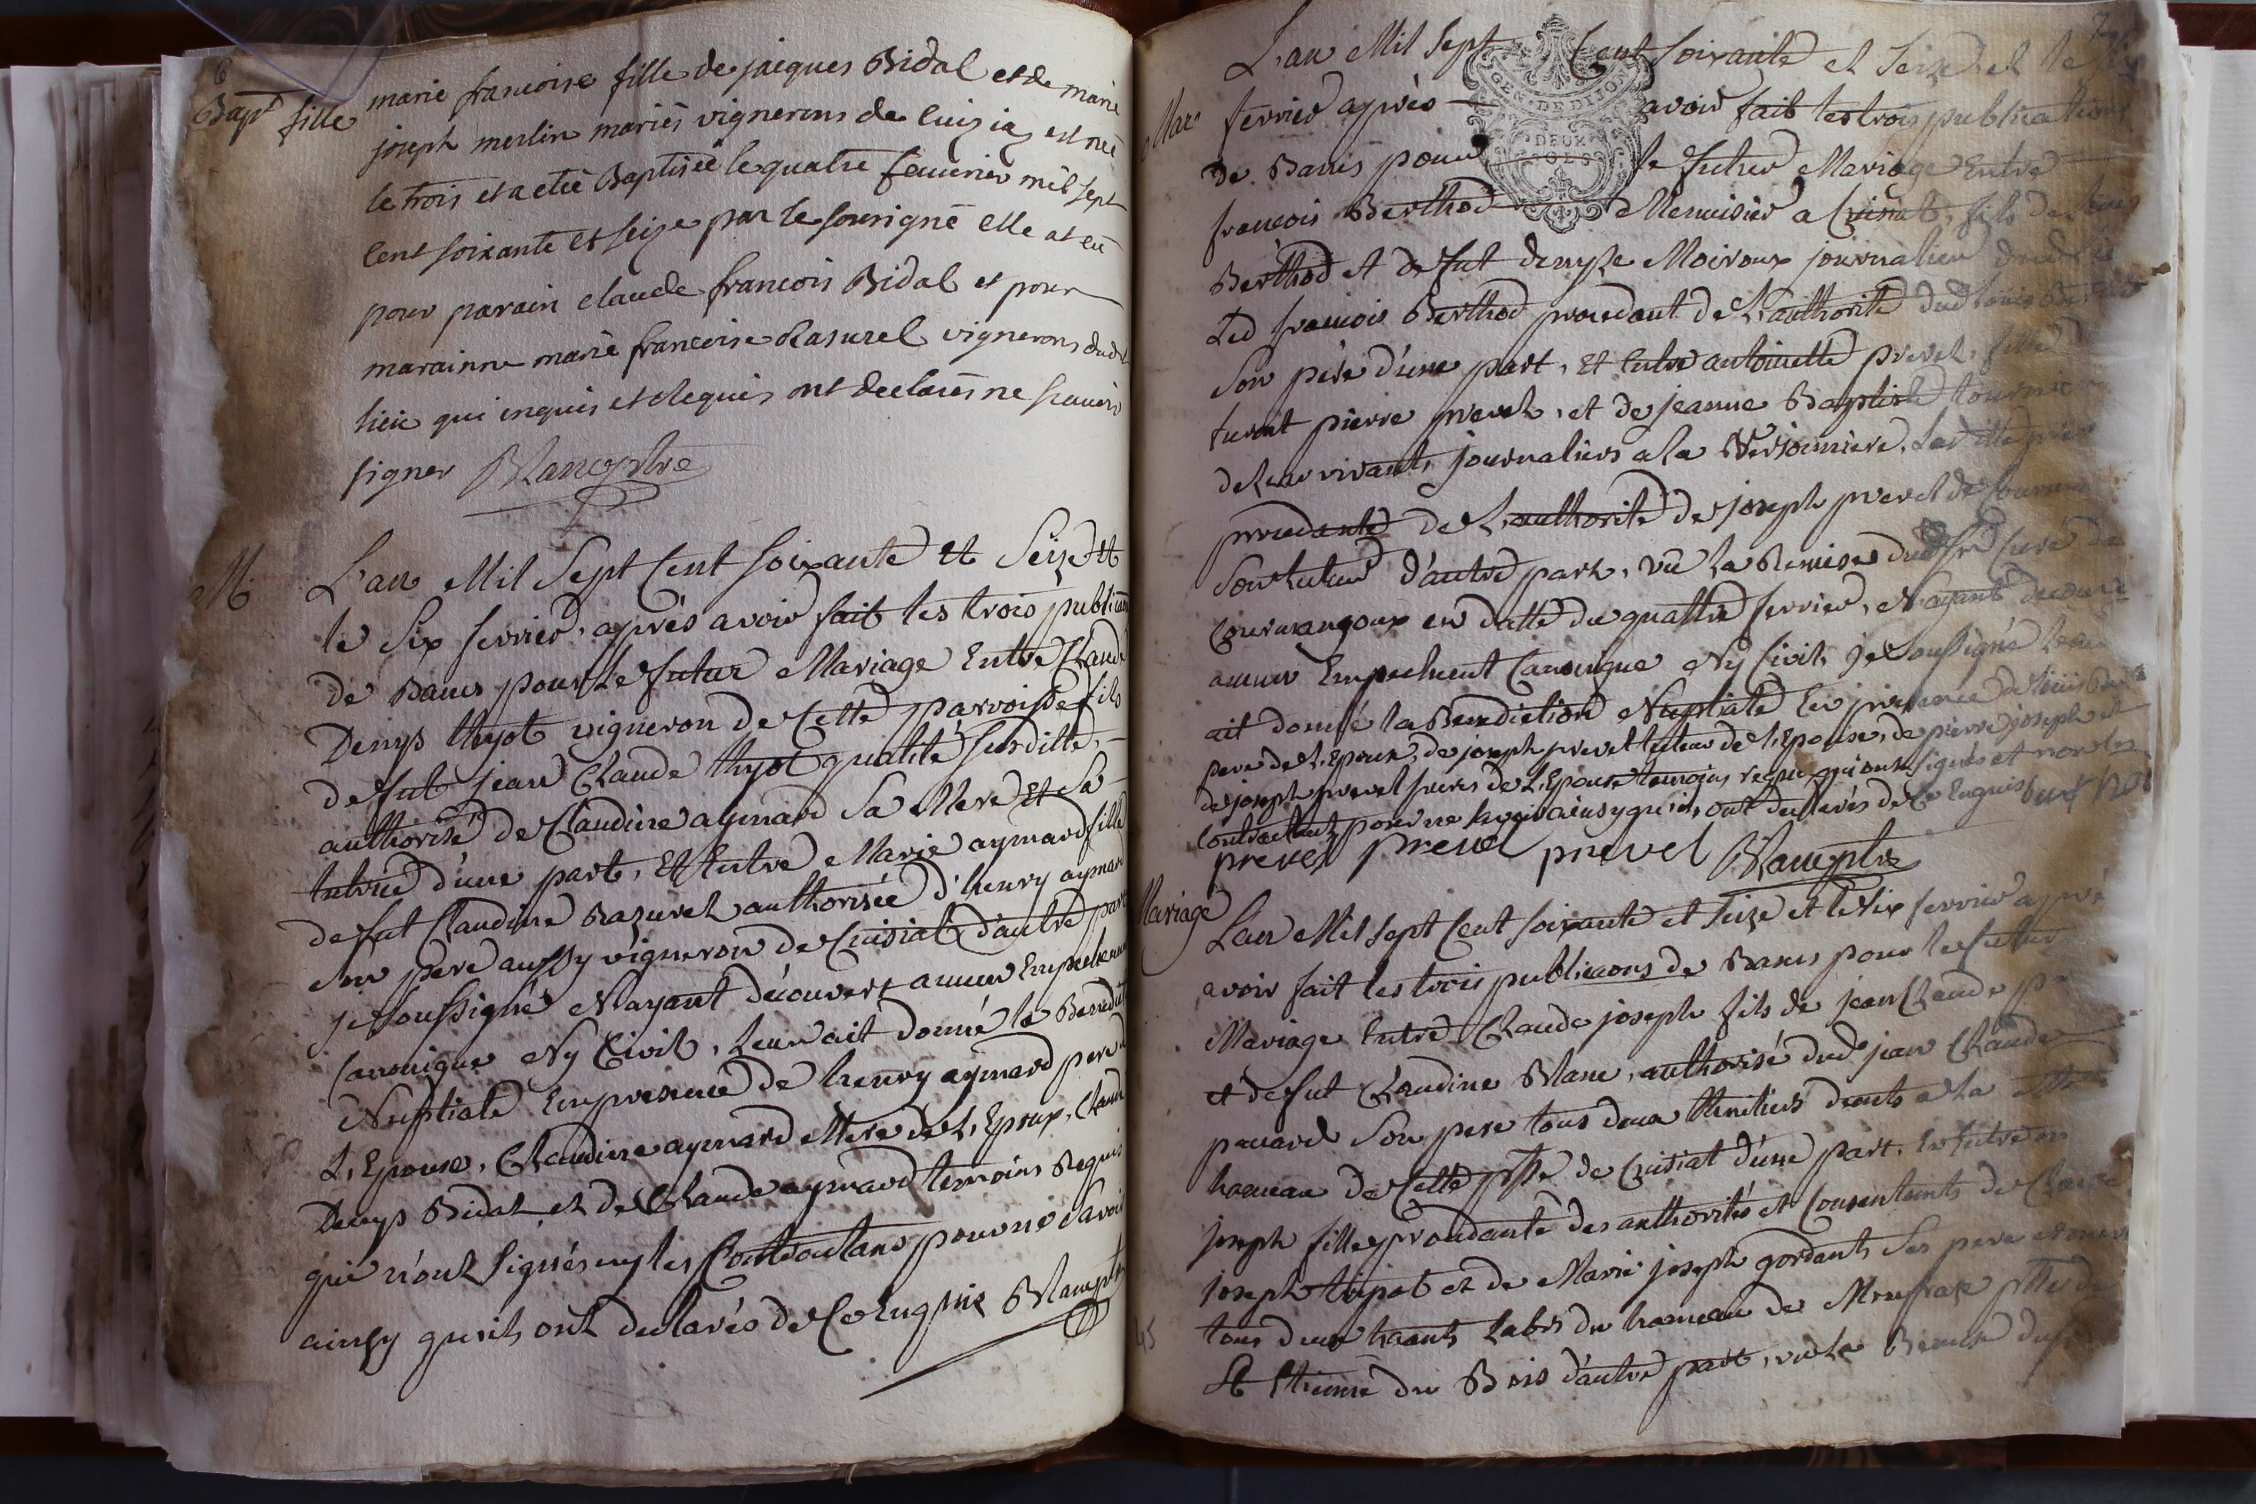 6
Bapt fille
marie francoise fille de jacques Bidal et de marie
joseph merlin mariés vignerons de cuiziaz est née
le trois et a etée Baptisée le quatre feuvrier mil sept
cent soixante et seize par le sousigné elle at eü
pour parain claude francois Bidal et pour
marainne marie francoise Rasurel vignerons dudt
lieu qui inquis et Requis ont declarés ne scavoir
signer Blancptre
M.
L'an Mil Sept Cent soixante et Seize et
le Six fevrier, après avoir fait les trois publicaons
de Bancs pour le futur Mariage Entre Claude
Denys thyot vigneron de Cette parroisse fils
de fut jean Claude thyot qualité susditte,
authorisé de Claudine aymard Sa Mere Et Sa
tutrice d'une part, Et Entre Marie aymard fille
de fut Claudine Razurel authorisée d'henry aymard
Son pere aussy vigneron de Cuisiat d'autre part
je soussigné N'ayant découvert aucun Empechement
Canonique Ny Civil, leur ait donné la Benedict
Nuptiale En presence de henry aymard pere de
L'Epouse, Claudine aymard Mere de L'Epoux, Claude
Denys Bidal et de Claude aymard temoins Requis
qui n'ont Signés ny les Contractans pour ne Savoir
ainsy qu'ils ont declarés de Ce Enquis Blancptre
7
Mar
L'an Mil Sept Cent soixante et Seize et le six
GEN. DE DIJON
DEUX SOLS
fevrier après avoir fait les trois publications
de Bancs pour le futur Mariage Entre
francois Berthod Menuisier a Cuisiat, fils de Louis
Berthod et de fut denyse Moiroux journalier dud
Led francois Berthod procedant de L'authorité dud Louis Berthod
Son père d'une part, Et Entre antoinette prevel, fille
furent pierre prevel, et de jeanne Baptiste
de leur vivant, journaliers a la Verjonniere, Lad fille
procedante de L'authorité de joseph prevel de
Son tuteur d'autre part, vû la Remise dud Sr Curé de
Courmangoux en datte du quattre fevrier, N'ayant decouvert
aucun Empechment Canonique Ny Civil, je Soussigné leur
ait donné la Benediction Nuptiale En presence de Louis
pere de L'Epoux, de joseph prevel tuteur de L'Epouse, de pierre joseph et
de joseph prevel freres de L'Epouse temoins requis qui ont signés et non les
Contractants pour ne savoir ainsy qu'ils ont declarés de Ce Enquis
prevel prevel prevel Blancptre
Mariage
L'an Mil Sept Cent soixante et Seize et le Six fevrier après
avoir fait les trois publicaons de Bancs pour le futur
Mariage Entre Claude joseph fils de jean Claude
et de fut Claudine Blanc, authorisé dud jean Claude
pauard Son pere tous deux
hameau de Cette psse de Cuisiat d'une part, Et Entre
joseph fille procedante des authorités et Consentements de Claude
joseph et de Marie joseph gordant, Ses pere et mere
tous deux hants Labrs du hameau de psse de
St Etienne du Bois d'autre part, vu la Remise du
45